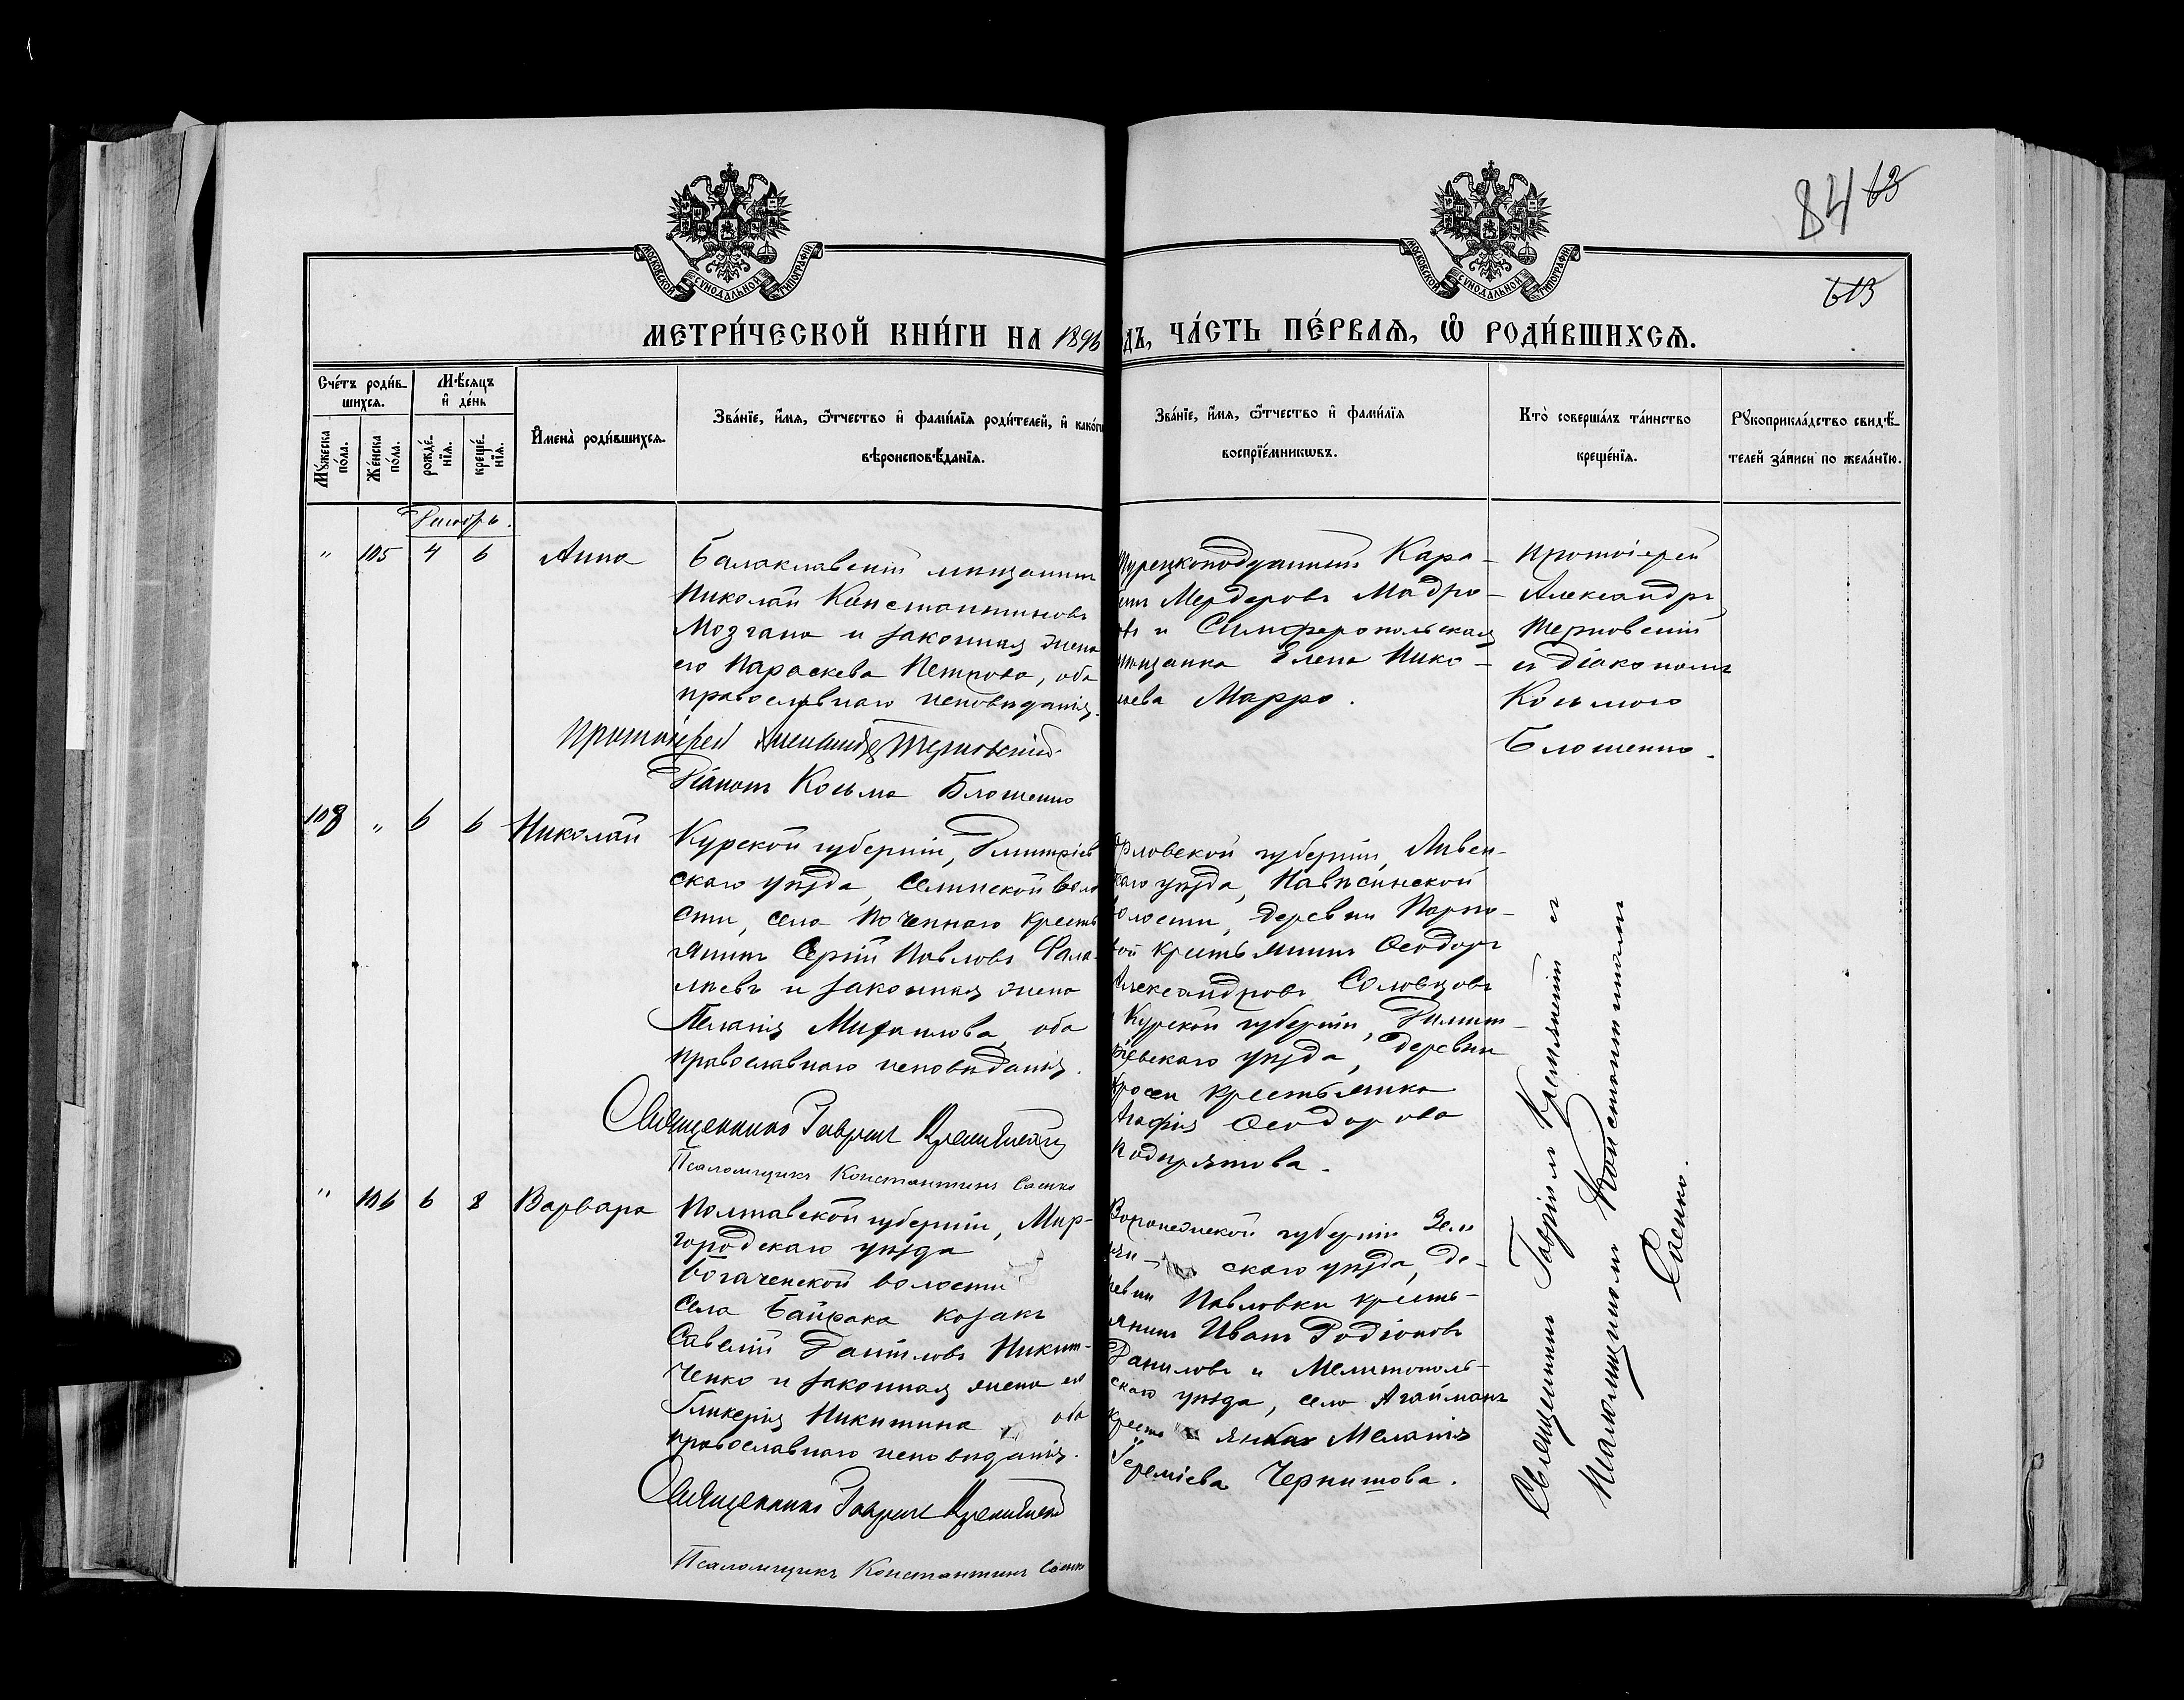 84 63
613
МОСКОВСКОЙ СѴНОДАЛЬНОЙ ТИПОГРАФІИ
МОСКОВСКОЙ СѴНОДАЛЬНОЙ ТИПОГРАФІИ
МЕТРИ́ЧЕСКОЙ КНИ́ГИ НА 1896
дъ, ЧА́СТЬ ПЕ́РВАѦ, Ѡ҆ РОДИ́ВШИХСѦ.
Сче́тъ роди́в-
шихсѧ.
Мѣ́сѧцъ
и҆ де́нь
Мꙋ́жеска
по́ла.
Же́нска
по́ла.
рожде́-
нїѧ.
креще́-
нїѧ.
И҆мена̀ роди́вшихсѧ.
Зва́нїе, и҆́мѧ, ѻ҆́тчество и҆ фами́лїѧ роди́телей, и҆ како́гѡ
вѣроисповѣ́данїѧ.
Зва́нїе, и҆́мѧ, ѻ҆́тчество и҆ фами́лїѧ
воспрїе́мникѡвъ.
Кто̀ соверша́лъ та́инство
креще́нїѧ.
Рꙋкоприкла́дство свидѣ́-
телей за́писи по жела́нїю.
" 105 4 6 Анна
Балаклавскій мѣщанинъ
Николай Константиновъ
Мозгана и законная жена
его Параскева Петрова, оба
православнаго исповѣданія.
Протоіерей Александръ Терновскій
Діаконъ Косьма Блошенко
Турецкоподданный Кара-
Мердеровъ Мадро-
въ и Симферопольская
мѣщанка Елена Нико-
лаева Марро.
Протоіерей
Александръ
Терновскій
съ діакономъ
Косьмою
Блошенко.
108 " 6 6 Николай
Курской губерніи, Дмитріев
скаго уѣзда, Селинской воло
сти, села Поченнаго кресть
янинъ Сергій Павловъ Фала-
лѣевъ и законная жена
Пелагія Михаилова, оба
православнаго исповѣданія.
Священникъ Гавріилъ Кремянскій
Псаломщикъ Константинъ Саенко
Орловской губерніи, Ливен-
скаго уѣзда,
волости, деревни
вой крестьянинъ Ѳеодоръ
Александровъ Соловцовъ
и Курской губерніи, Дмит-
ріевскаго уѣзда, деревни
крестьянка
Агафія Ѳеодорова
" 106 6 8 Варвара
Полтавской губерніи, Мир-
городскаго уѣзда
Богаченской волости
села Байрака козакъ
Савелій Даніиловъ Никит-
ченко и законная жена его
Гликерія Никитина оба
православнаго исповѣданія.
Священникъ Гавріилъ Кремянскій
Псаломщикъ Константинъ Саенко
Воронежской губерніи Зем
лян- скаго уѣзда, де-
ревни Павловки кресть-
янинъ Иванъ Родіоновъ
Даниловъ и Мелитополь-
скаго уѣзда, село Агайманъ
кресть янка Меланія
Іереміева Чернышова.
Священникъ Гавріилъ Кремянскій съ
Псаломщикомъ Константиномъ
Саенко.